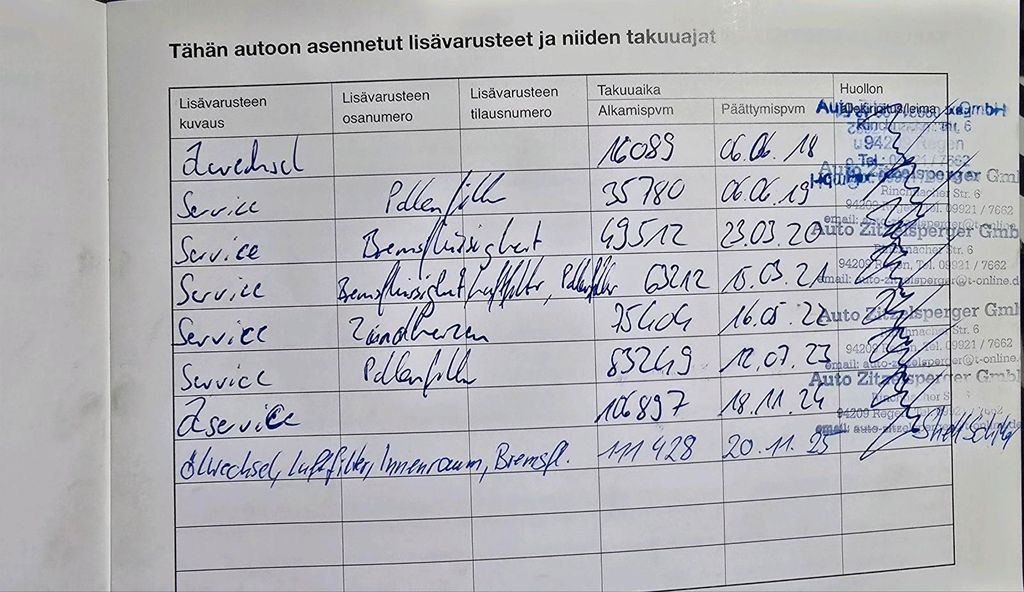 Tähän autoon asennetut lisävarusteet ja niiden takuuajat
Lisävarusteen kuvaus
Lisävarusteen osanumero
Lisävarusteen tilausnumero
Takuuaika
Alkamispvm Päättymispvm
Huollon
16089 06.06.18
Service Pollenfilter 35780 06.06.19
Service Bremsflüssigkeit 49512 23.03.20
Service Bremsflüssigkeit, Luftfilter, Pollenfilter 63212 15.03.21
Service Zündkerzen 75404 16.05.22
Service Pollenfilter 83249 12.07.23
106897 18.11.24
Ölwechsel, Luftfilter, Innenraum, Bremsfl. 111428 20.11.25
Auto Zitzelsperger GmbH
Rinchnacher Str. 6
94209 Regen, Tel. 09921 / 7662
email: auto-zitzelsperger@t-online.d
Auto Zitzelsperger Gmb
Rinchnacher Str. 6
94209 Regen, Tel. 09921 / 7662
email: auto-zitzelsperger@t-online.d
Auto Zitzelsperger GmbH
Rinchnacher Str. 6
94209 Regen, Tel. 09921 / 7662
email: auto-zitzelsperger@t-online.
Auto Zitzelsperger GmbH
94209 Regen